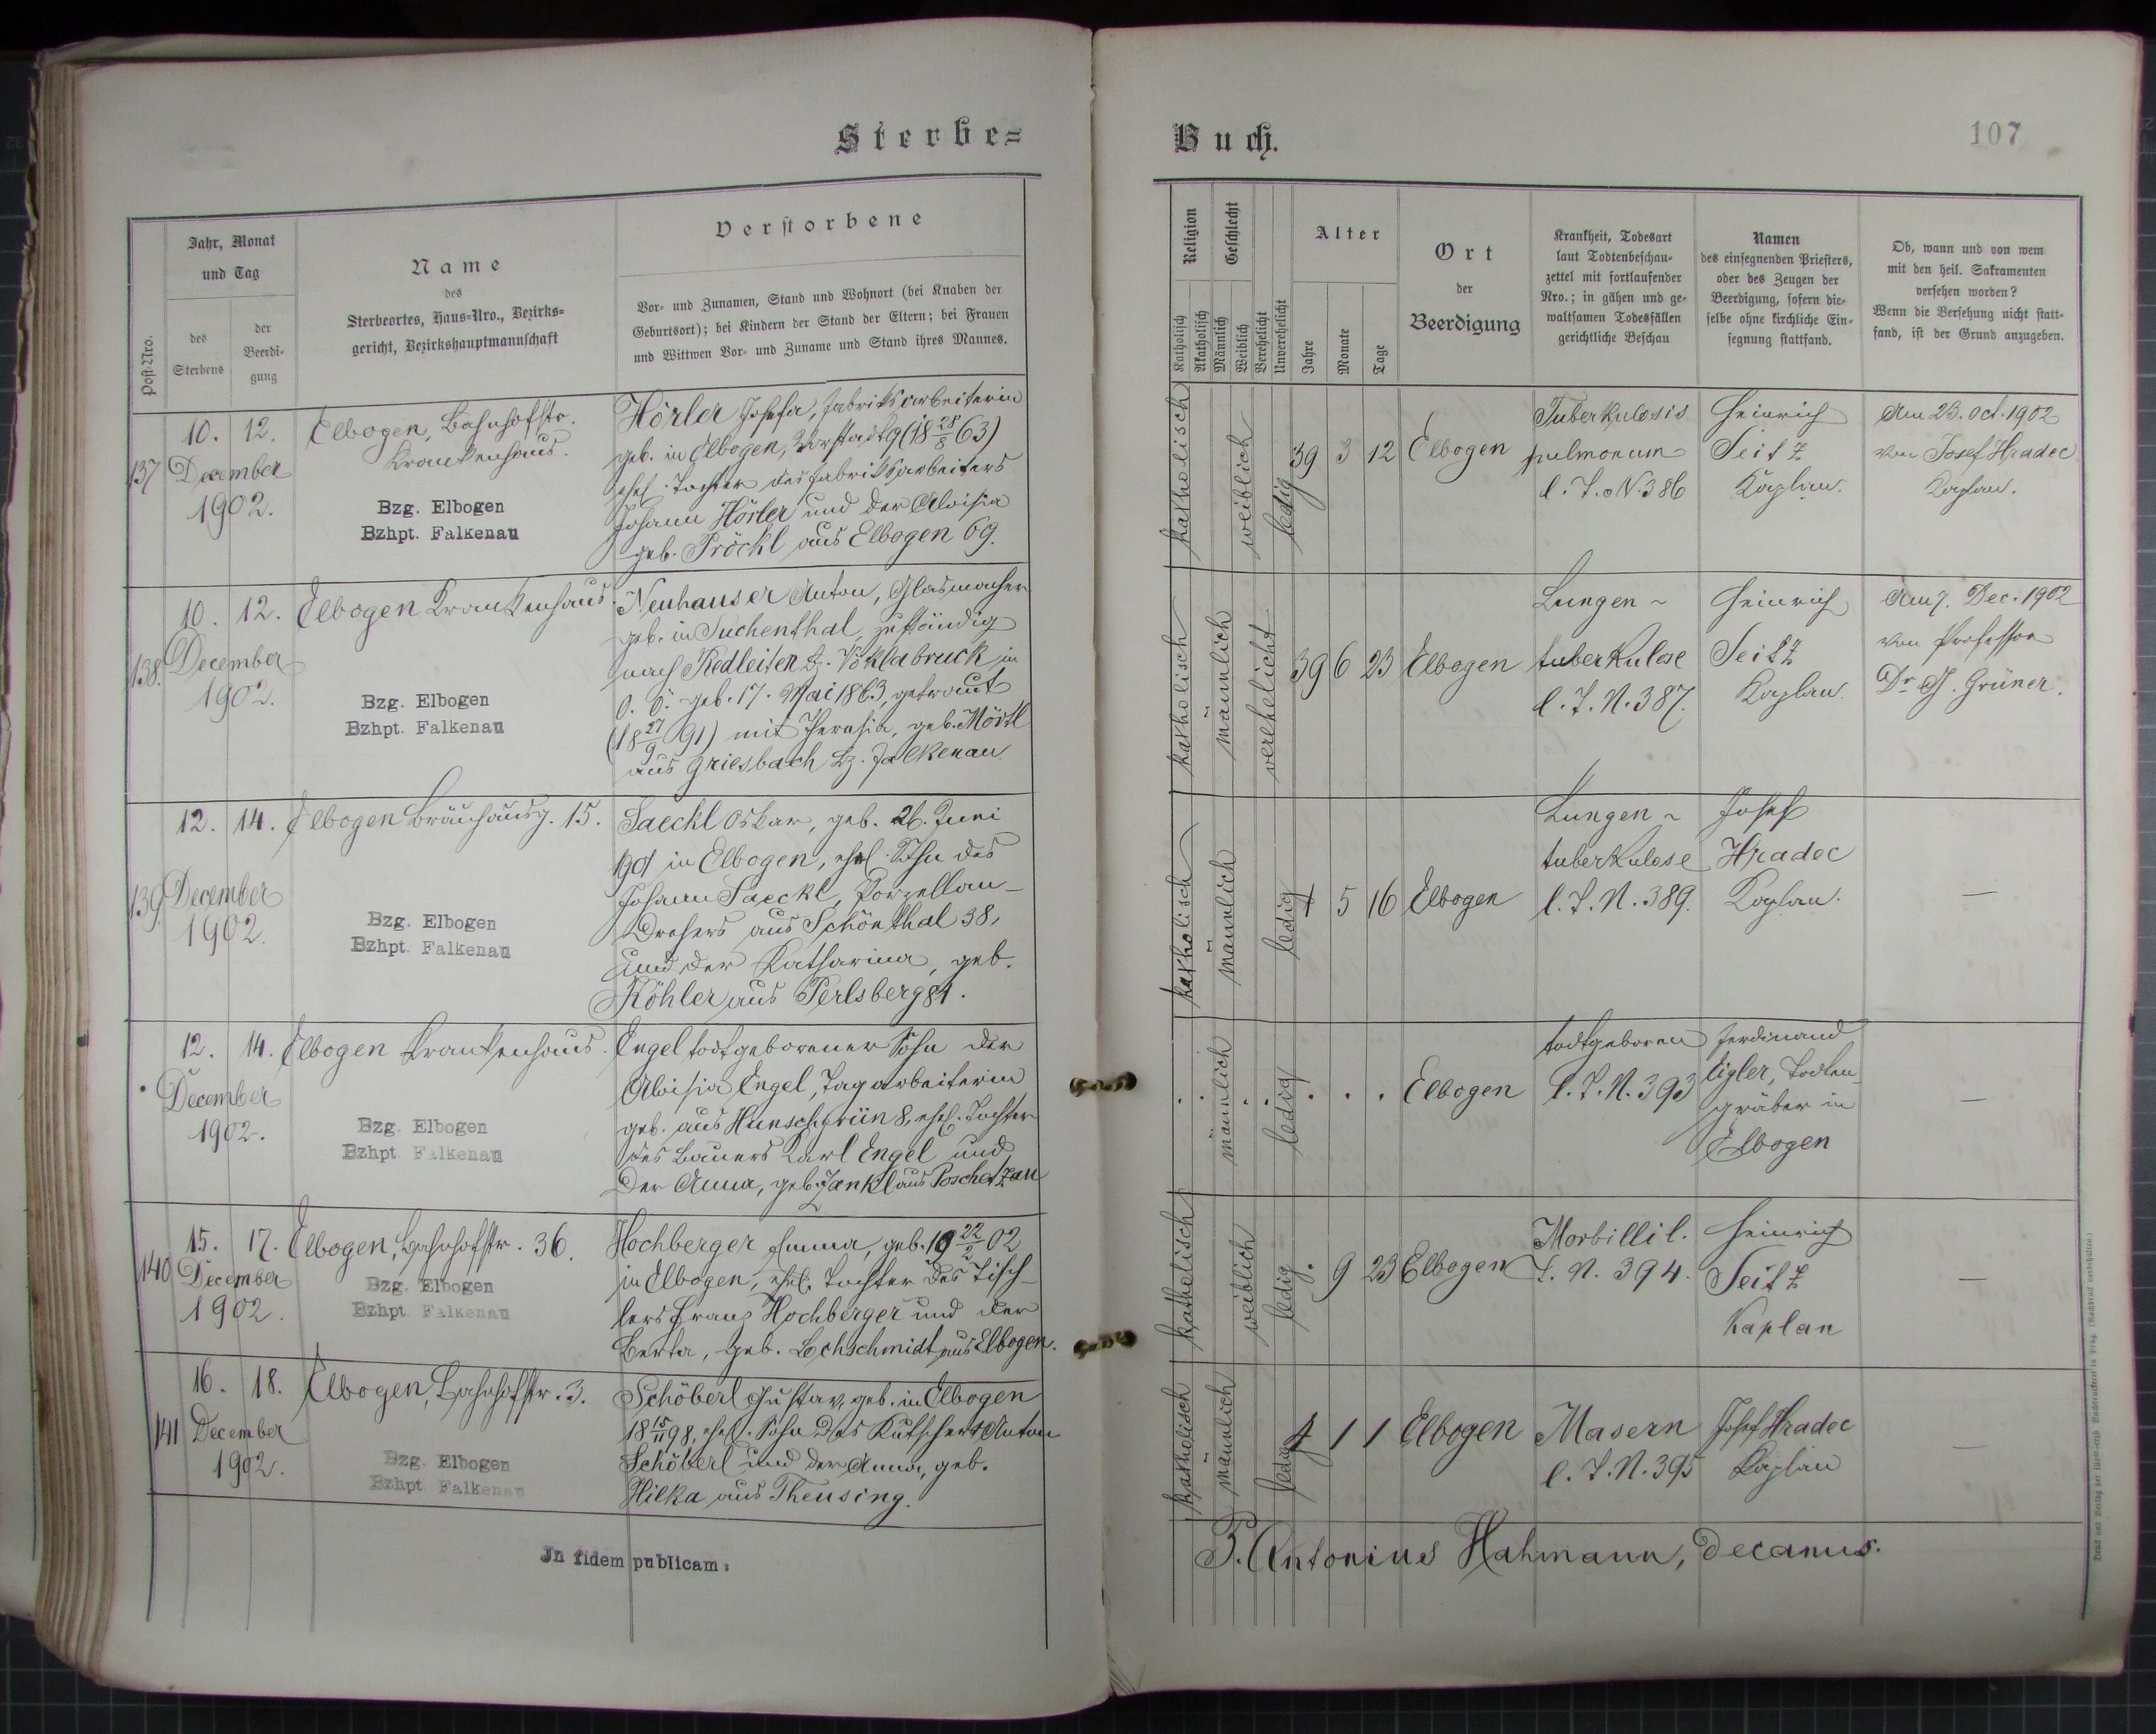 Sterbe=
Buch.
107
Post-Nro.
Jahr, Monat
und Tag
des
Sterbens
der
Beerdi-
gung
Name
des
Sterbeortes, Haus-Nro., Bezirks-
gericht, Bezirkshauptmannschaft
Verstorbene
Vor- und Zunamen, Stand und Wohnort (bei Knaben der
Geburtsort); bei Kindern der Stand der Eltern; bei Frauen
und Wittwen Vor- und Zuname und Stand ihres Mannes.
Religion
Katholisch
Akatholisch
Geschlecht
Männlich
Weiblich
Verehelicht
Unverehelicht
Alter
Jahre
Monate
Tage
Ort
der
Beerdigung
Krankheit, Todesart
laut Todtenbeschau-
zettel mit fortlaufender
Nro.; in gähen und ge-
waltsamen Todesfällen
gerichtliche Beschau
Namen
des einsegnenden Priesters,
oder des Zeugen der
Beerdigung, sofern die-
selbe ohne kirchliche Ein-
segnung stattfand.
Ob, wann und von wem
mit den heil. Sakramenten
versehen worden?
Wenn die Versehung nicht statt-
fand, ist der Grund anzugeben.
137
10. 12.
December
1902.
Elbogen, Bahnhofstr.
Krankenhaus.
Bzg. Elbogen
Bzhpt. Falkenau
Hörler Josefa, Fabriksarbeiterin
geb. in Elbogen, Vorstadt 9 (18 28/8 63)
ehel. Tochter des Fabriksarbeiters
Johann Hörler und der Aloisia
geb. Pröckl aus Elbogen 69.
katholisch
weiblich
ledig
39 3 12
Elbogen
Tuberkulosis
pulmonum
l. T. N. 386
Heinrich
Seitz
Kaplan.
Am 23. Oct. 1902
von Josef Hradec
Kaplan.
138.
10. 12.
December
1902.
Elbogen Krankenhaus.
Bzg. Elbogen
Bzhpt. Falkenau
Neuhauser Anton, Glasmacher
geb. in Suchenthal, zuständig
nach Redleiten Bz. Vöklabruck in
O. Ö. geb. 17. Mai 1863, getraut
(18 27/9 91) mit Theresia, geb. Mörtl
aus Griesbach Bz. Falkenau.
katholisch
männlich
verehelicht
39 6 23
Elbogen
Lungen-
tuberkulose
l. T. N. 387.
Heinrich
Seitz
Kaplan.
Am 7. Dec. 1902
von Professor
Dr J. Grüner.
139.
12. 14.
December
1902.
Elbogen Bräuhausg. 15.
Bzg. Elbogen
Bzhpt. Falkenau
Saeckl Oskar, geb. 26. Juni
1901 in Elbogen, ehel. Sohn des
Johann Saeckl, Porzellan-
Drehers aus Schönthal 38,
und der Katharina, geb.
Köhler aus Perlsberg 81.
katholisch
männlich
ledig
1 5 16
Elbogen
Lungen-
tuberkulose
l. T. N. 389.
Josef
Hradec
Kaplan.
—
12. 14.
December
1902.
Elbogen Krankenhaus.
Bzg. Elbogen
Bzhpt. Falkenau
Engel todtgeborener Sohn der
Aloisia Engel, Tagarbeiterin
geb. aus Hunschgrün 8, ehel. Tochter
des Bauers Karl Engel und
der Anna, geb. Jankl aus Poschetzau
männlich
ledig
Elbogen
todtgeboren
l. T. N. 393
Ferdinand
Eigler, Todten-
gräber in
Elbogen
—
140
15. 17.
December
1902.
Elbogen, Bahnhofstr. 36.
Bzg. Elbogen
Bzhpt. Falkenau
Hochberger Emma, geb. 19 22/2 02
in Elbogen, ehel. Tochter des Tisch-
lers Franz Hochberger und der
Berta, geb. Lochschmidt aus Elbogen.
katholisch
weiblich
ledig
. 9 23
Elbogen
Morbilli l.
T. N. 394.
Heinrich
Seitz
Kaplan
—
141
16. 18.
December
1902.
Elbogen, Bahnhofstr. 3.
Bzg. Elbogen
Bzhpt. Falkenau
Schöberl Gustav, geb. in Elbogen
18 15/11 98, ehel. Sohn des Kutschers Anton
Schöberl und der Anna, geb.
Hilka aus Theusing.
katholisch
männlich
ledig
4 1 1
Elbogen
Masern
l. T. N. 395
Josef Hradec
Kaplan
—
In fidem publicam:
P. Antonius Hahmann, Decanus.